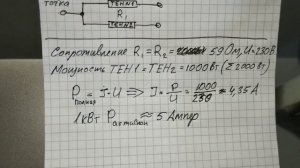 ТОЧКА
ТЕНН1
R₁
ТЕНН2
Сопротивление R₁ = R₂ = 59 Ом, U = 230 В
Мощность ТЕН1 = ТЕН₂ = 1000 Вт (Σ 2000 Вт)
P полная = I · U ⇒ I = P/U = 1000/230 ≈ 4,35 А
1 кВт P активн ≈ 5 Ампер